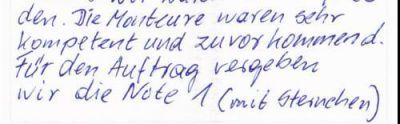 den. Die Monteure waren sehr
kompetent und zuvorkommend.
Für den Auftrag vergeben
wir die Note 1 (mit Sternchen)